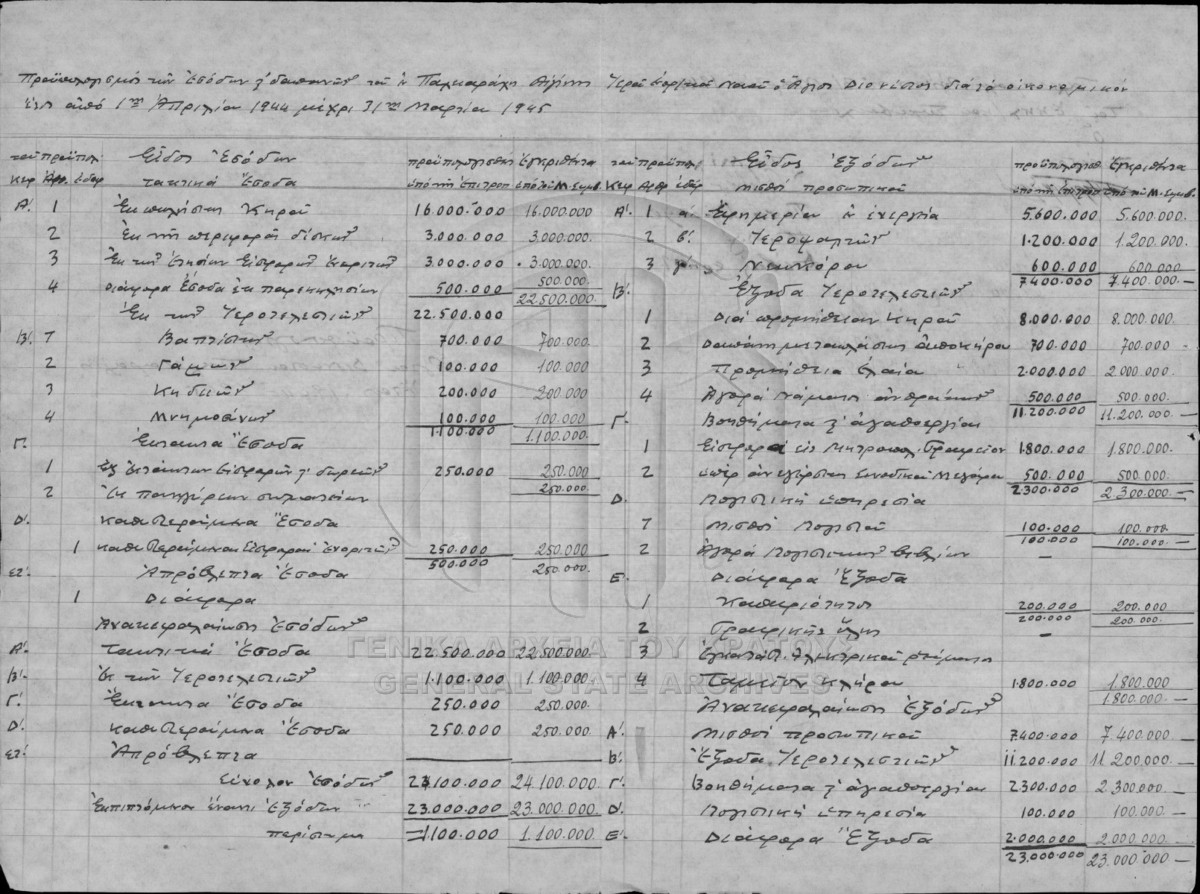 Προϋπολογισμός τῶν Ἐσόδων κ' δαπανῶν τοῦ ἐν Παλιαράχῃ Αἰγίνης Ἱεροῦ Ναοῦ ὁ Ἅγιος Διονύσιος διά τό οἰκονομικόν
ἔτος ἀπό 1ης Ἀπριλίου 1944 μέχρι 31ης Μαρτίου 1945
τοῦ προϋπολ. Εἶδος Ἐσόδων προϋπολογισθέντα Ἐγκριθέντα τοῦ προϋπολ. Εἶδος Ἐξόδων προϋπολογισθ. Ἐγκριθέντα
Κεφ Ἀρθ. Ἐδαφ τακτικά Ἔσοδα ὑπό τῆς ἐπιτροπ ὑπό τοῦ Μ. Συμβ. Κεφ Ἀρθρ ἐδάφ Μισθοί προσωπικοῦ ὑπό τῆς ἐπιτροπ ὑπό τοῦ Μ. Συμβ.
Α'. 1 Ἐκ πωλήσεως Κηροῦ 16.000.000 16.000.000 Α'. 1 α'. Ἐφημερίου ἐν ἐνεργείᾳ 5.600.000 5.600.000.
2 Ἐκ τῆς περιφορᾶς δίσκων 3.000.000 3.000.000. 2 β'. Ἱεροψαλτῶν 1.200.000 1.200.000
3 Ἐκ τῶν ἐτησίων Εἰσφορῶν Ἐνοριτῶν 3.000.000 3.000.000. 3 γ'. Νεωκόρου 600.000 600.000
4 Διάφορα Ἔσοδα ἐκ παρεκκλησίων 500.000 500.000. Β'. Ἔξοδα Ἱεροτελεστιῶν 7400.000 7.400.000.—
22.500.000
Ἐκ τῶν Ἱεροτελεστιῶν 22.500.000 1 Διά προμήθειαν Κηροῦ 8.000.000 8.000.000.
Β'. 1 Βαπτίσεις 700.000 700.000. 2 Δαπάνη μεταπλάσεως ἀποκήρου 700.000 700.000
2 Γάμων 100.000 100.000 3 Προμήθεια ἐλαίου 2.000.000 2.000.000.
3 Κηδειῶν 200.000 200.000 4 Ἀγορά Νάματος ἀνθράκων 500.000 500.000.
4 Μνημοσύνων 100.000 100.000 Γ'. Βοηθήματα κ' ἀγαθοεργίαι 11.200.000 11.200.000.—
Γ. Ἔκτακτα Ἔσοδα 1.100.000 1.100.000. 1 Εἰσφορά εἰς Μητροπολ. Γραφεῖον 1.800.000 1.800.000.
1 Ἐξ ἐκτάκτων Εἰσφορῶν κ' δωρεῶν 250.000 250.000 2 ὑπέρ ἀνεγέρσεως Συνοδικοῦ Μεγάρου 500.000 500.000.
2 Ἐκ πανηγύρεων 250.000. Δ. Λογιστική ὑπηρεσία 2300.000 2.300.000.—
Δ'. Καθυστερούμενα Ἔσοδα 1 Μισθοί Λογιστοῦ 100.000 100.000.
1 Καθυστερούμεναι Εἰσφοραί Ἐνοριτῶν 250.000 250.000 2 Ἀγορά Λογιστικῶν Βιβλίων — 100.000 100.000.—
Ἀπρόβλεπτα Ἔσοδα 500.000 250.000. Ε'. Διάφορα Ἔξοδα
1 Διάφορα 1 Καθαριότητος 200.000 200.000
Ἀνακεφαλαίωσις Ἐσόδων 2 Γραφικῆς ὕλης — 200.000 200.000.
Α'. Τακτικά Ἔσοδα 22.500.000 22.500.000. 3 Ἐγκατάστ. Ἠλεκτρικοῦ ρεύματος
Β'. Ἐκ τῶν Ἱεροτελεστιῶν 1.100.000 1.100.000. 4 Ταμεῖον Κλήρου 1.800.000 1.800.000
Γ'. Ἔκτακτα Ἔσοδα 250.000 250.000. Ἀνακεφαλαίωσις Ἐξόδων 1.800.000.—
Δ'. Καθυστερούμενα Ἔσοδα 250.000 250.000. Α'. Μισθοί προσωπικοῦ 7400.000 7.400.000.—
Ἀπρόβλεπτα Β'. Ἔξοδα Ἱεροτελεστιῶν 11.200.000 11.200,000.—
Σύνολον Ἐσόδων 24.100.000 24.100.000. Γ'. Βοηθήματα κ' ἀγαθοεργίαι 2300.000 2.300.000.—
Ἐκπιπτόμενον ἔναντι Ἐξόδων 23.000.000 23.000.000 Δ'. Λογιστική ὑπηρεσία 100.000 100.000.—
περίσσευμα 1100.000 1.100.000. Ε'. Διάφορα Ἔξοδα 2.000.000 2.000.000—
23.000.000 23.000.000.—
ΓΕΝΙΚΑ ΑΡΧΕΙΑ ΤΟΥ ΚΡΑΤΟΥΣ
GENERAL STATE ARCHIVES